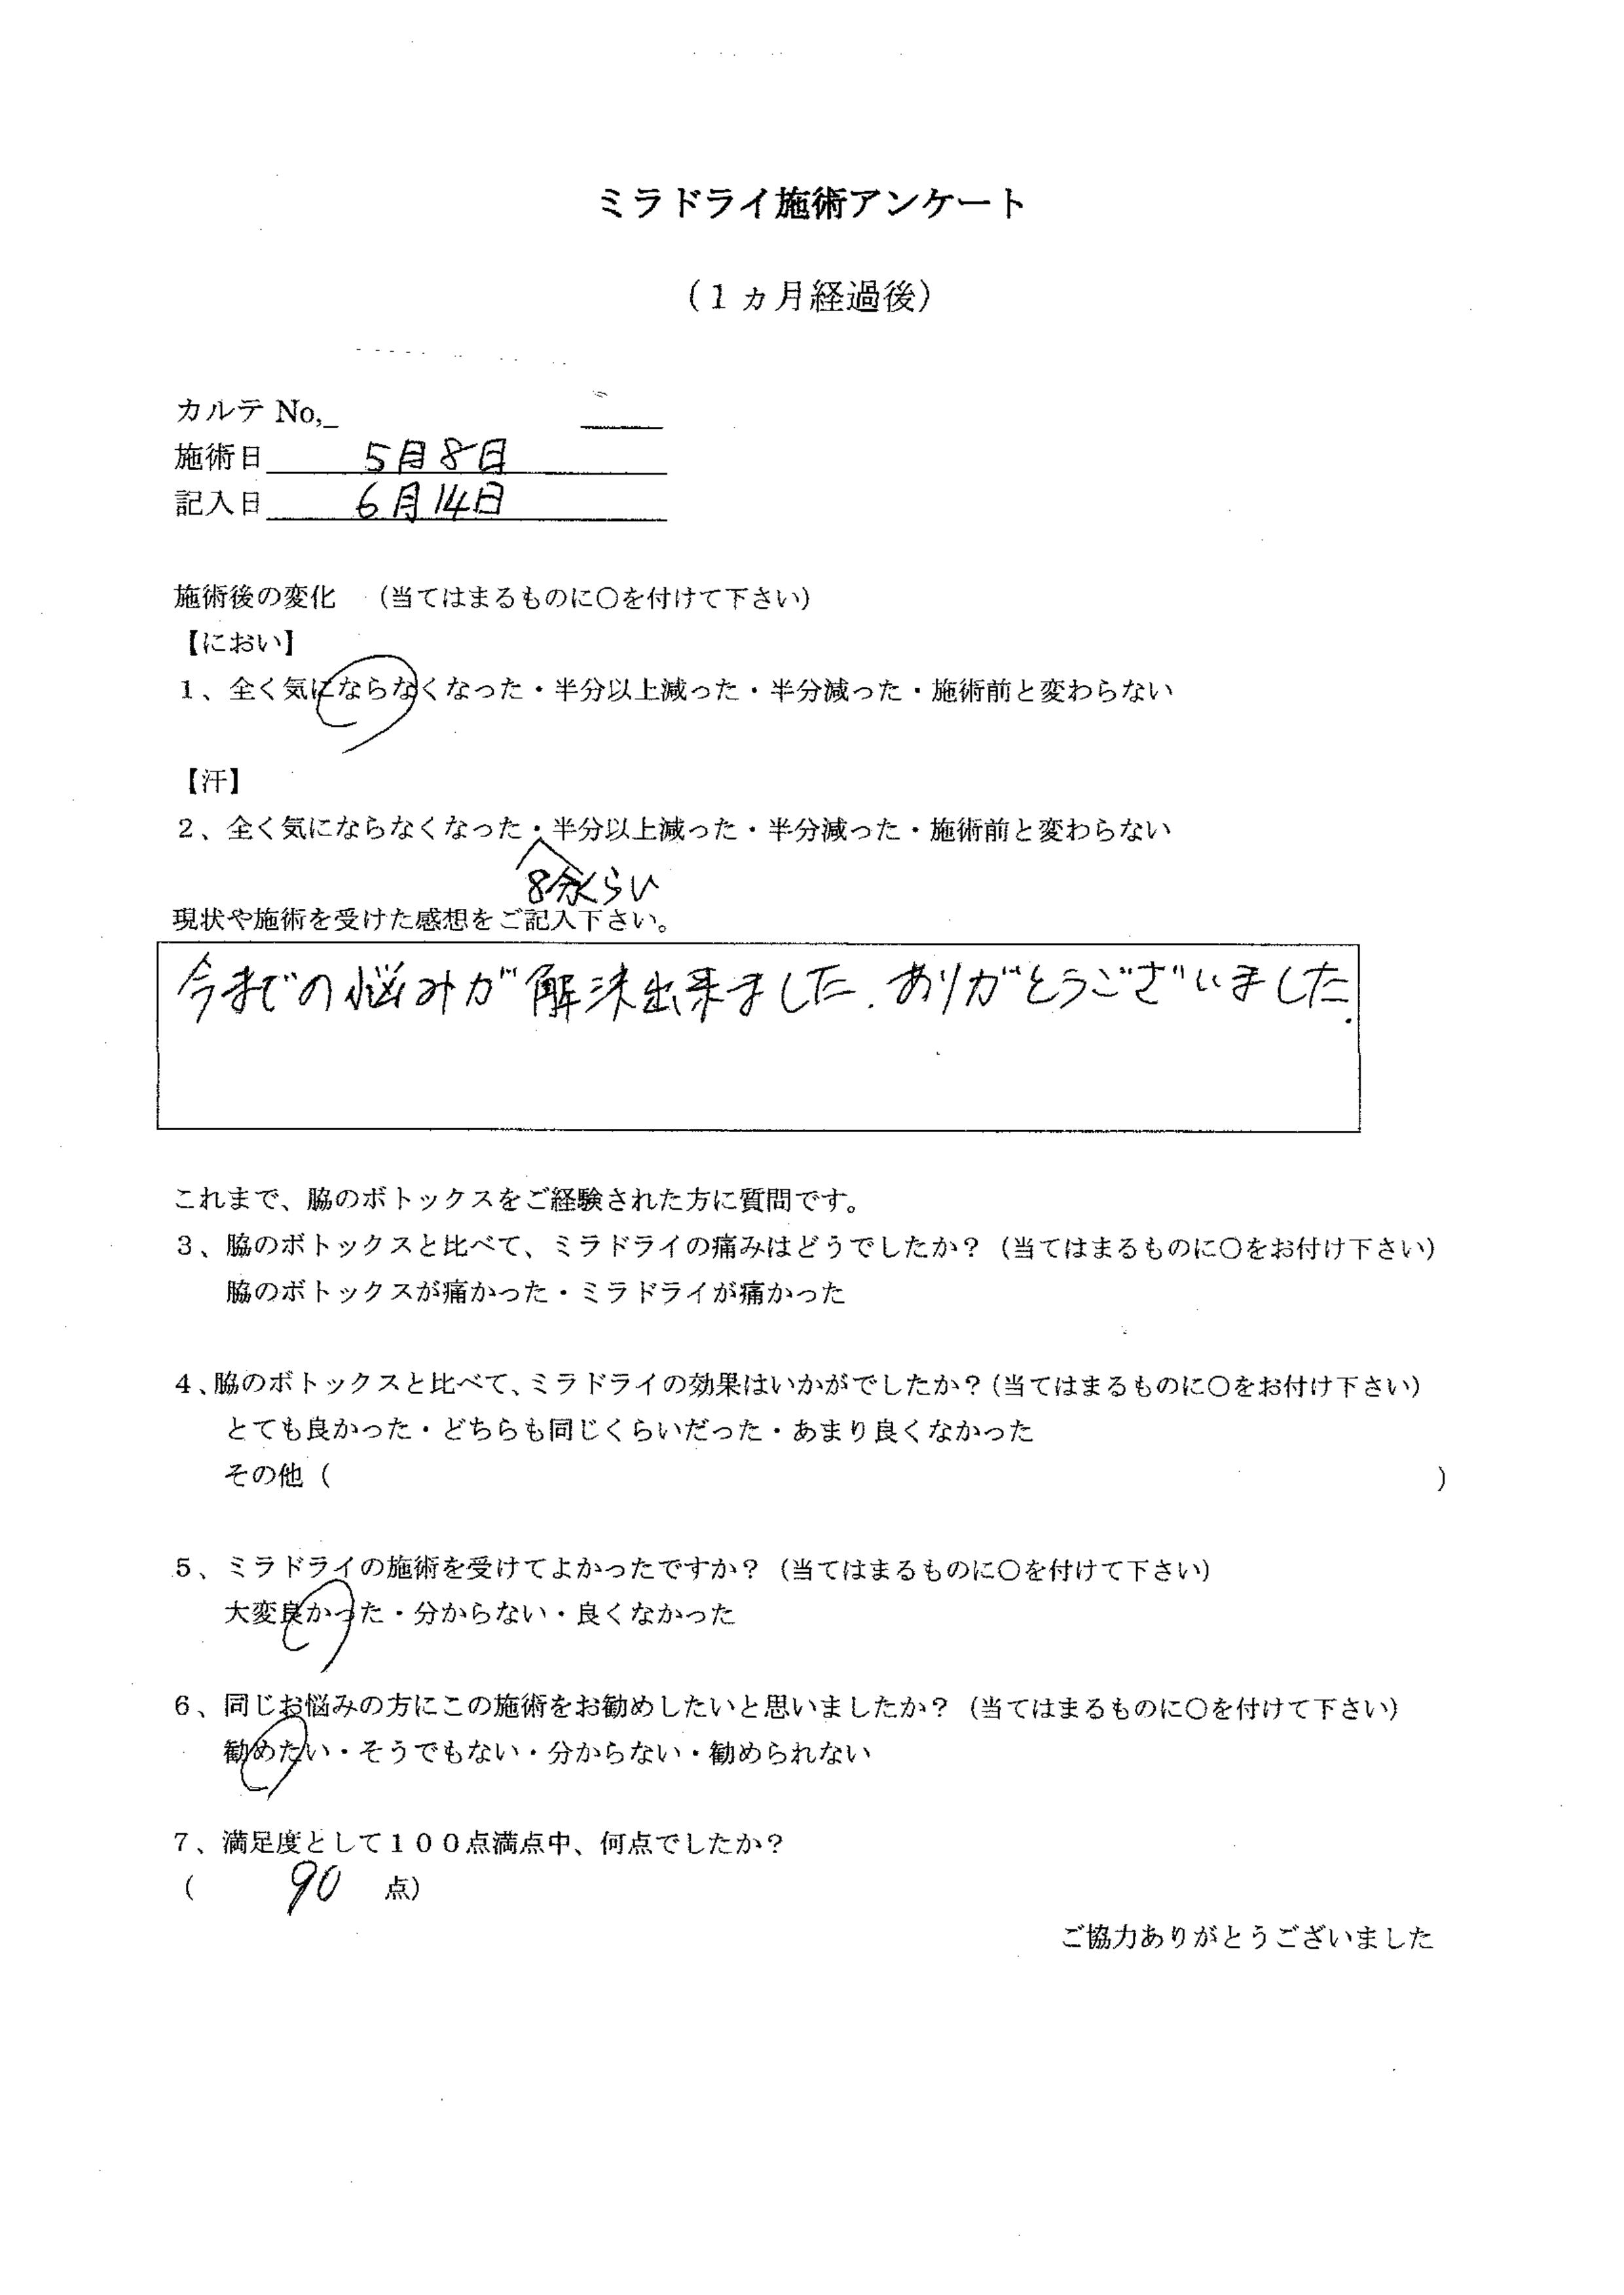 ミラドライ施術アンケート
(1ヵ月経過後)
カルテ No,
施術日 5月8日
記入日 6月14日
施術後の変化 (当てはまるものに○を付けて下さい)
【におい】
1、全く気にならなくなった・半分以上減った・半分減った・施術前と変わらない
【汗】
2、全く気にならなくなった・半分以上減った・半分減った・施術前と変わらない
8分くらい
現状や施術を受けた感想をご記入下さい。
今までの悩みが解決出来ました.ありがとうございました.
これまで、脇のボトックスをご経験された方に質問です。
3、脇のボトックスと比べて、ミラドライの痛みはどうでしたか?(当てはまるものに○をお付け下さい)
脇のボトックスが痛かった・ミラドライが痛かった
4、脇のボトックスと比べて、ミラドライの効果はいかがでしたか?(当てはまるものに○をお付け下さい)
とても良かった・どちらも同じくらいだった・あまり良くなかった
その他( )
5、ミラドライの施術を受けてよかったですか?(当てはまるものに○を付けて下さい)
大変良かった・分からない・良くなかった
6、同じお悩みの方にこの施術をお勧めしたいと思いましたか?(当てはまるものに○を付けて下さい)
勧めたい・そうでもない・分からない・勧められない
7、満足度として100点満点中、何点でしたか?
( 90 点)
ご協力ありがとうございました